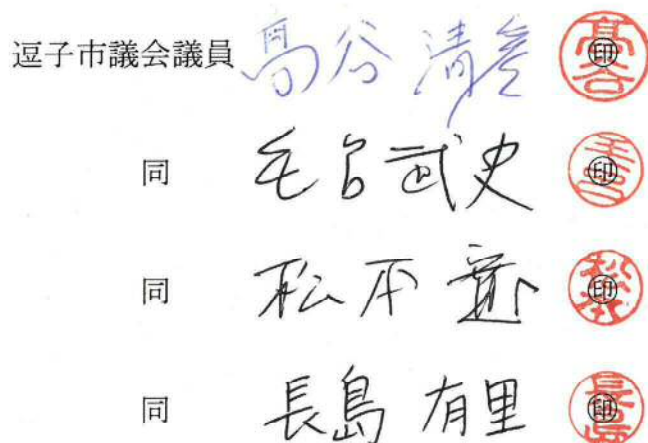 逗子市議会議員 髙谷清彦 印
同 毛呂武史 印
同 松本寛 印
同 長島有里 印